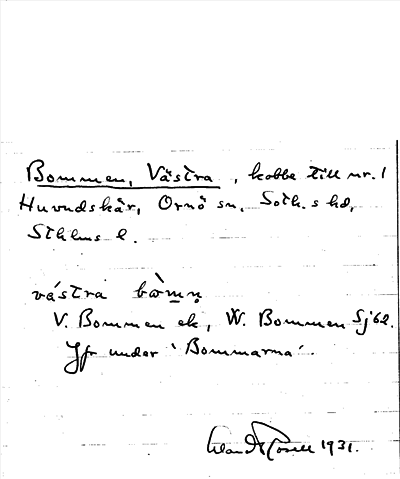 Bommen, Västra, kobbe till nr. 1
Huvudskär, Ornö sn, Soth.s hd,
Sthlms l.
västra bòmn̥
V. Bommen ek, W. Bommen Sj 62.
Jfr under 'Bommarna'.
1931.